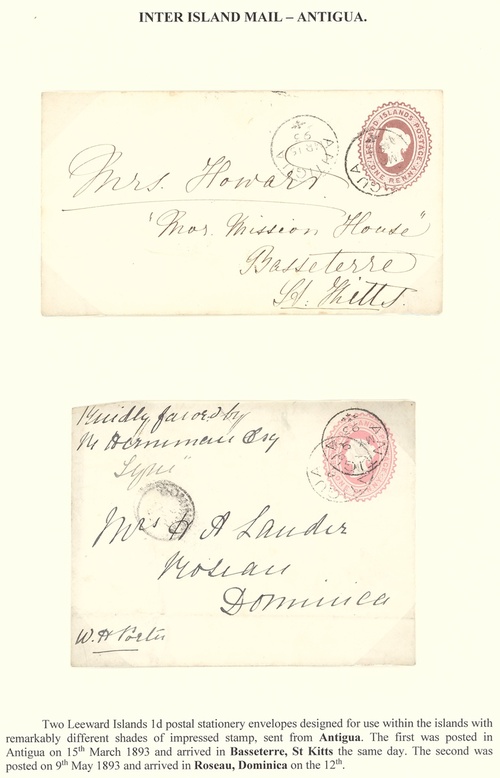 INTER ISLAND MAIL – ANTIGUA.
LEEWARD ISLANDS POSTAGE
ONE PENNY
ANTIGUA
Mrs. Howard
"Mor. Mission House"
Basseterre
St. Kitts.
Kindly favored by
Esq
ANTIGUA
Mrs H A Lauder
Roseau
Dominica
W. H. Porter
Two Leeward Islands 1d postal stationery envelopes designed for use within the islands with
remarkably different shades of impressed stamp, sent from Antigua. The first was posted in
Antigua on 15th March 1893 and arrived in Basseterre, St Kitts the same day. The second was
posted on 9th May 1893 and arrived in Roseau, Dominica on the 12th.